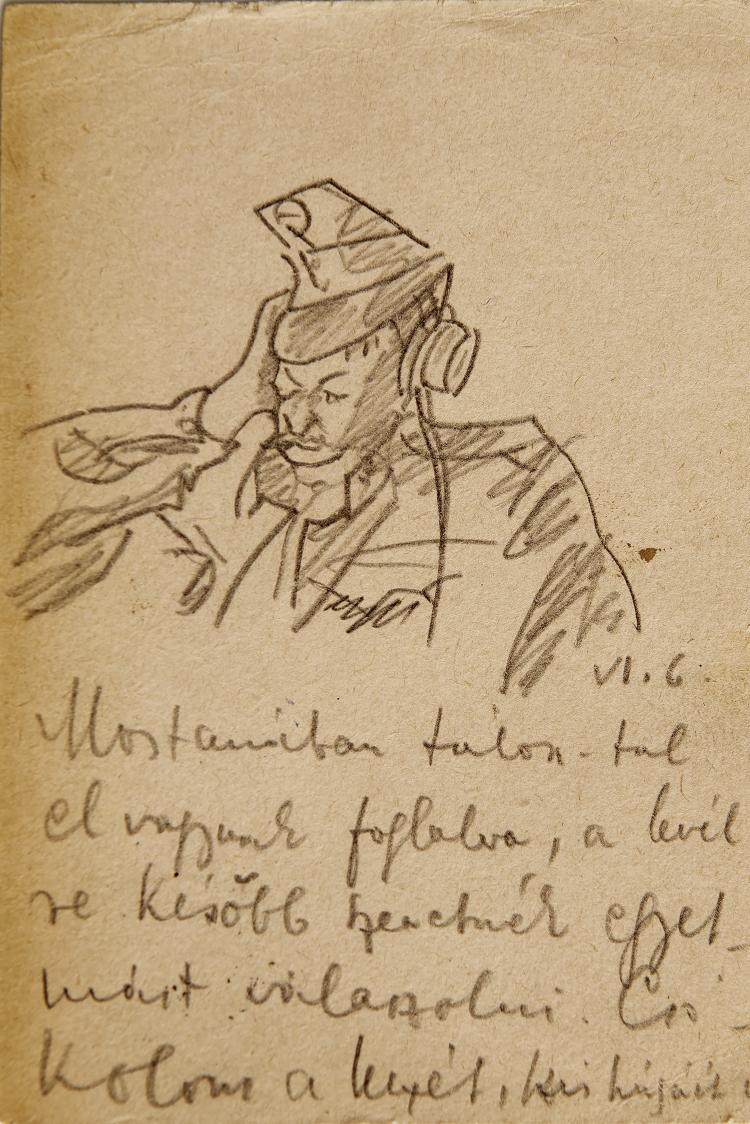 VI. 6.
Mostanában túlon-túl
el vagyunk foglalva, a levél
re később szeretnék egyet-
mást válaszolni. Csó-
kolom a kezét, kis húgáét